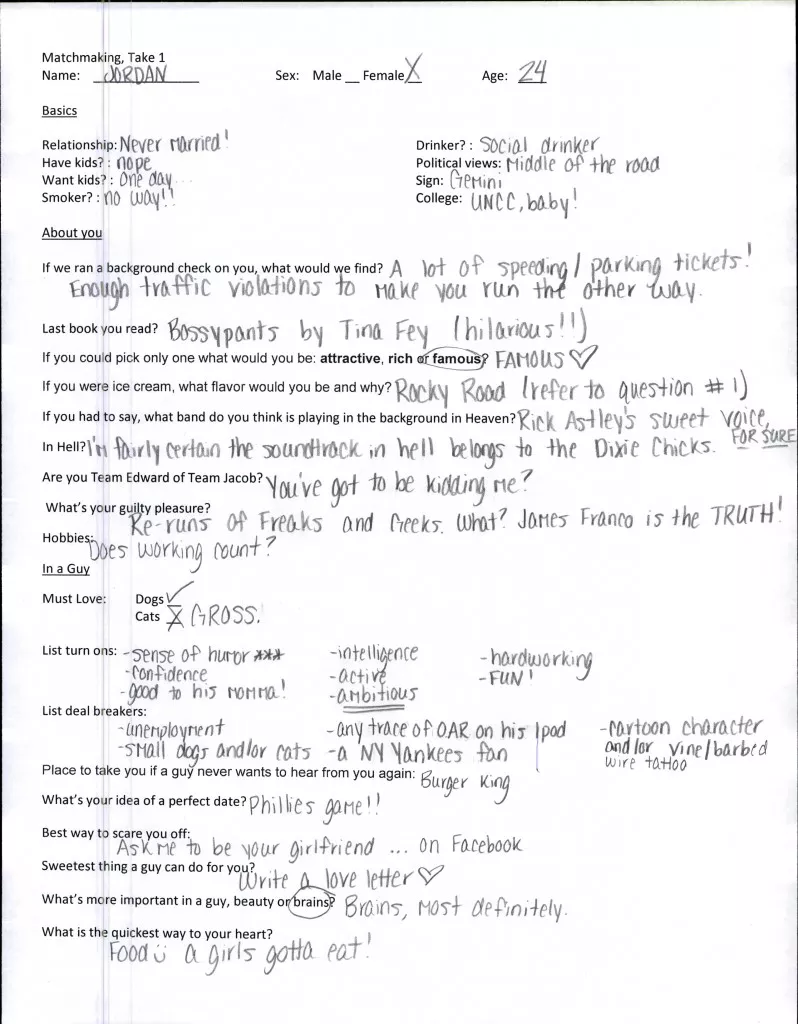 Matchmaking, Take 1
Name: JORDAN Sex: Male __ Female X Age: 24
Basics
Relationship: Never married! Drinker? : Social drinker
Have kids? : nope Political views: Middle of the road
Want kids? : One day... Sign: Gemini
Smoker? : no way!! College: UNCC, baby!
About you
If we ran a background check on you, what would we find? A lot of speeding/parking tickets!
Enough traffic violations to make you run the other way.
Last book you read? Bossypants by Tina Fey (hilarious!!)
If you could pick only one what would you be: attractive, rich or famous? FAMOUS ♡
If you were ice cream, what flavor would you be and why? Rocky Road (refer to question #1)
If you had to say, what band do you think is playing in the background in Heaven? Rick Astley's sweet voice,
FOR SURE
In Hell? I'm fairly certain the soundtrack in hell belongs to the Dixie Chicks.
Are you Team Edward of Team Jacob? You've got to be kidding me?
What's your guilty pleasure?
Re-runs of Freaks and Geeks. What? James Franco is the TRUTH!
Hobbies: Does working count?
In a Guy
Must Love: Dogs ✓
Cats X GROSS.
List turn ons: -sense of humor *** -intelligence -hardworking
-confidence -active -FUN!
-good to his momma! -ambitious
List deal breakers:
-unemployment -any trace of OAR on his Ipod -cartoon character
-small dogs and/or cats -a NY Yankees fan and/or vine/barbed
wire tattoo
Place to take you if a guy never wants to hear from you again: Burger King
What's your idea of a perfect date? Phillies game!!
Best way to scare you off:
Ask me to be your girlfriend ... on Facebook
Sweetest thing a guy can do for you?
Write a love letter ♡
What's more important in a guy, beauty or brains? Brains, most definitely.
What is the quickest way to your heart?
Food :) a girls gotta eat!